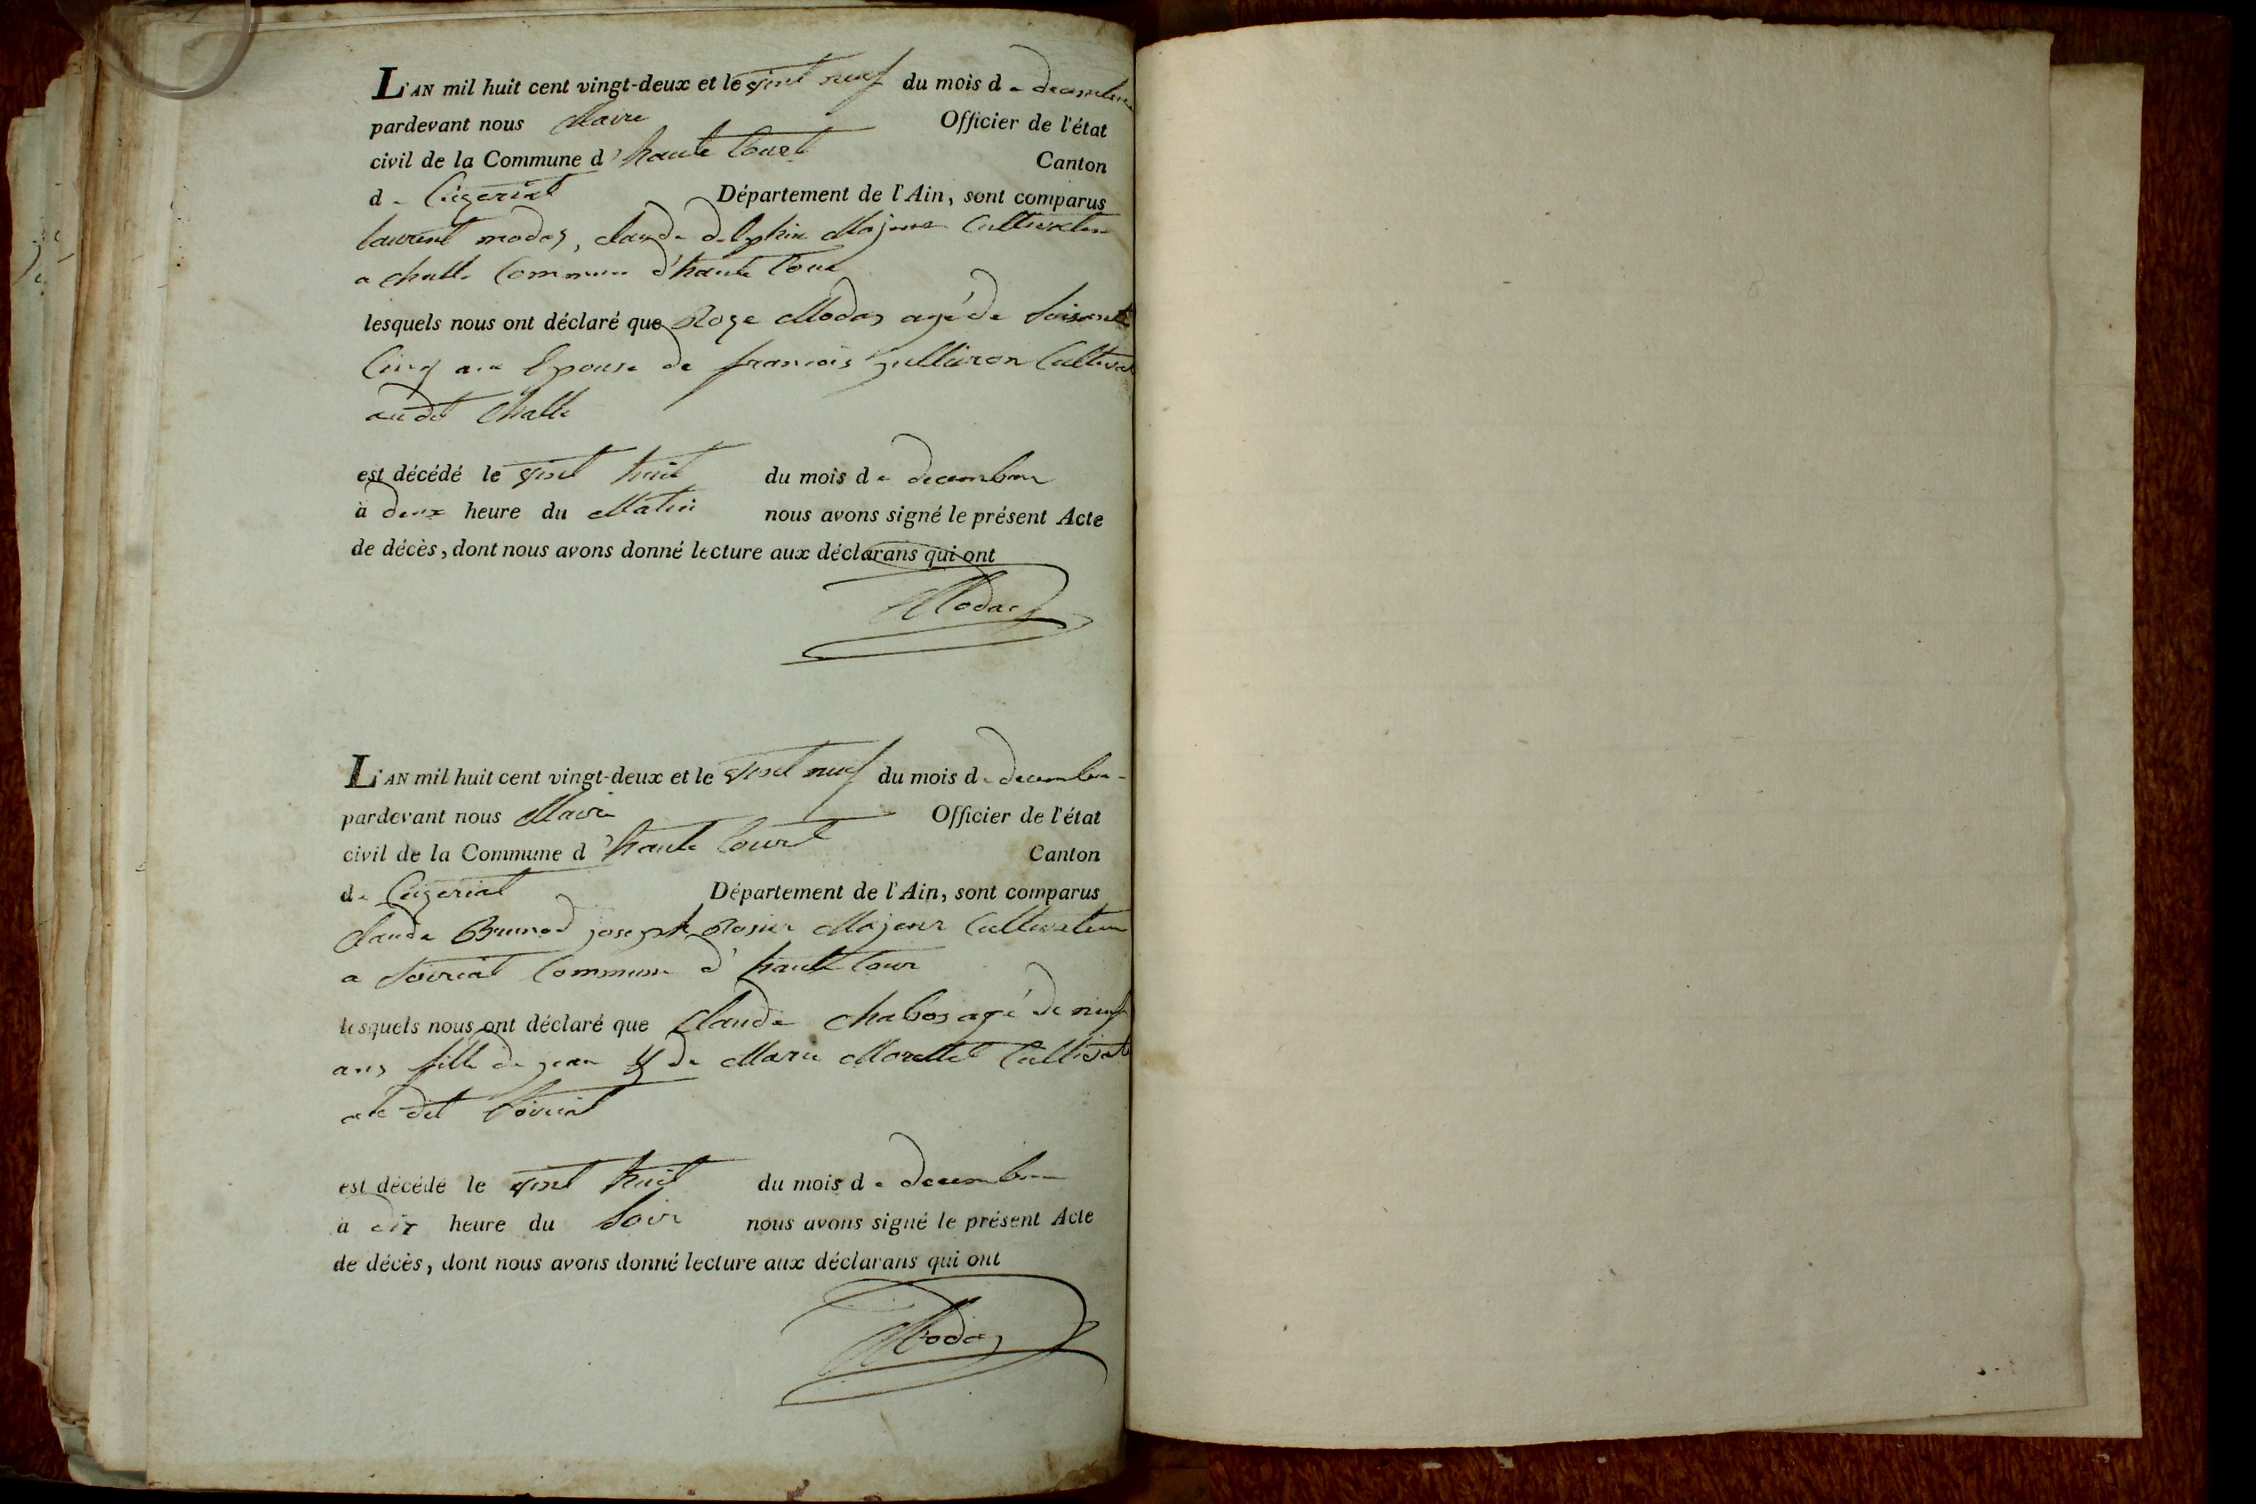 L'AN mil huit cent vingt-deux et le vint neuf du mois de decembre
pardevant nous Maire Officier de l'état
civil de la Commune d'haute Court Canton
de Ceizeriat Département de l'Ain, sont comparus
laurent modas, claude delphin Majeur Cultivateur
a challe Commune d'haute Cour
lesquels nous ont déclaré que Roze Modas agé de Soisante
Cinq ans Epouse de francois Cultivat
audit Challe
est décédé le vint huit du mois de decembre
à deux heure du Matin nous avons signé le présent Acte
de décès, dont nous avons donné lecture aux déclarans qui ont
Modas
L'AN mil huit cent vingt-deux et le vint neuf du mois de decembre
pardevant nous Maire Officier de l'état
civil de la Commune d'haute Court Canton
de Ceizeriat Département de l'Ain, sont comparus
Claude Brunod joseph Rosier Majeur Cultivateur
a Commune d'haute Cour
lesquels nous ont déclaré que Claude chabos agé de neuf
ans fille de jean & de Marie Morellet Cultivat
au dit
est décédé le vint huit du mois de decembre
à dix heure du Soir nous avons signé le présent Acte
de décès, dont nous avons donné lecture aux déclarans qui ont
Modas